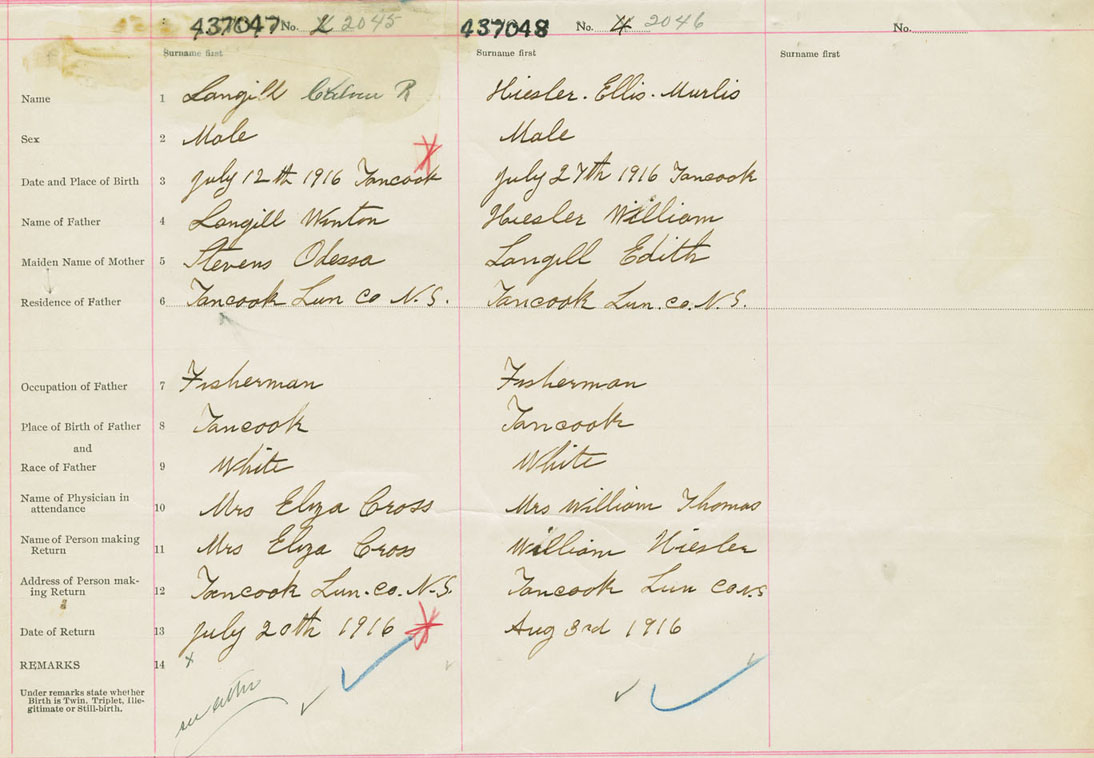 437047 No. 2045 437048 No. 4 2046 No.
Surname first Surname first Surname first
Name 1 Langill R Hiesler. Ellis. Murlis
Sex 2 Male Male
Date and Place of Birth 3 July 12th 1916 Tancook July 27th 1916 Tancook
Name of Father 4 Langill Winton Hiesler William
Maiden Name of Mother 5 Stevens Odessa Langill Edith
Residence of Father 6 Tancook Lun Co N.S. Tancook Lun. co. N.S.
Occupation of Father 7 Fisherman Fisherman
Place of Birth of Father 8 Tancook Tancook
and
Race of Father 9 White White
Name of Physician in
attendance 10 Mrs Eliza Cross Mrs William Thomas
Name of Person making
Return 11 Mrs Eliza Cross William Hiesler
Address of Person mak-
ing Return 12 Tancook Lun. co. N.S. Tancook Lun Co N.S
Date of Return 13 July 20th 1916 Aug 3rd 1916
REMARKS 14 x
Under remarks state whether
Birth is Twin, Triplet, Ille-
gitimate or Still-birth.